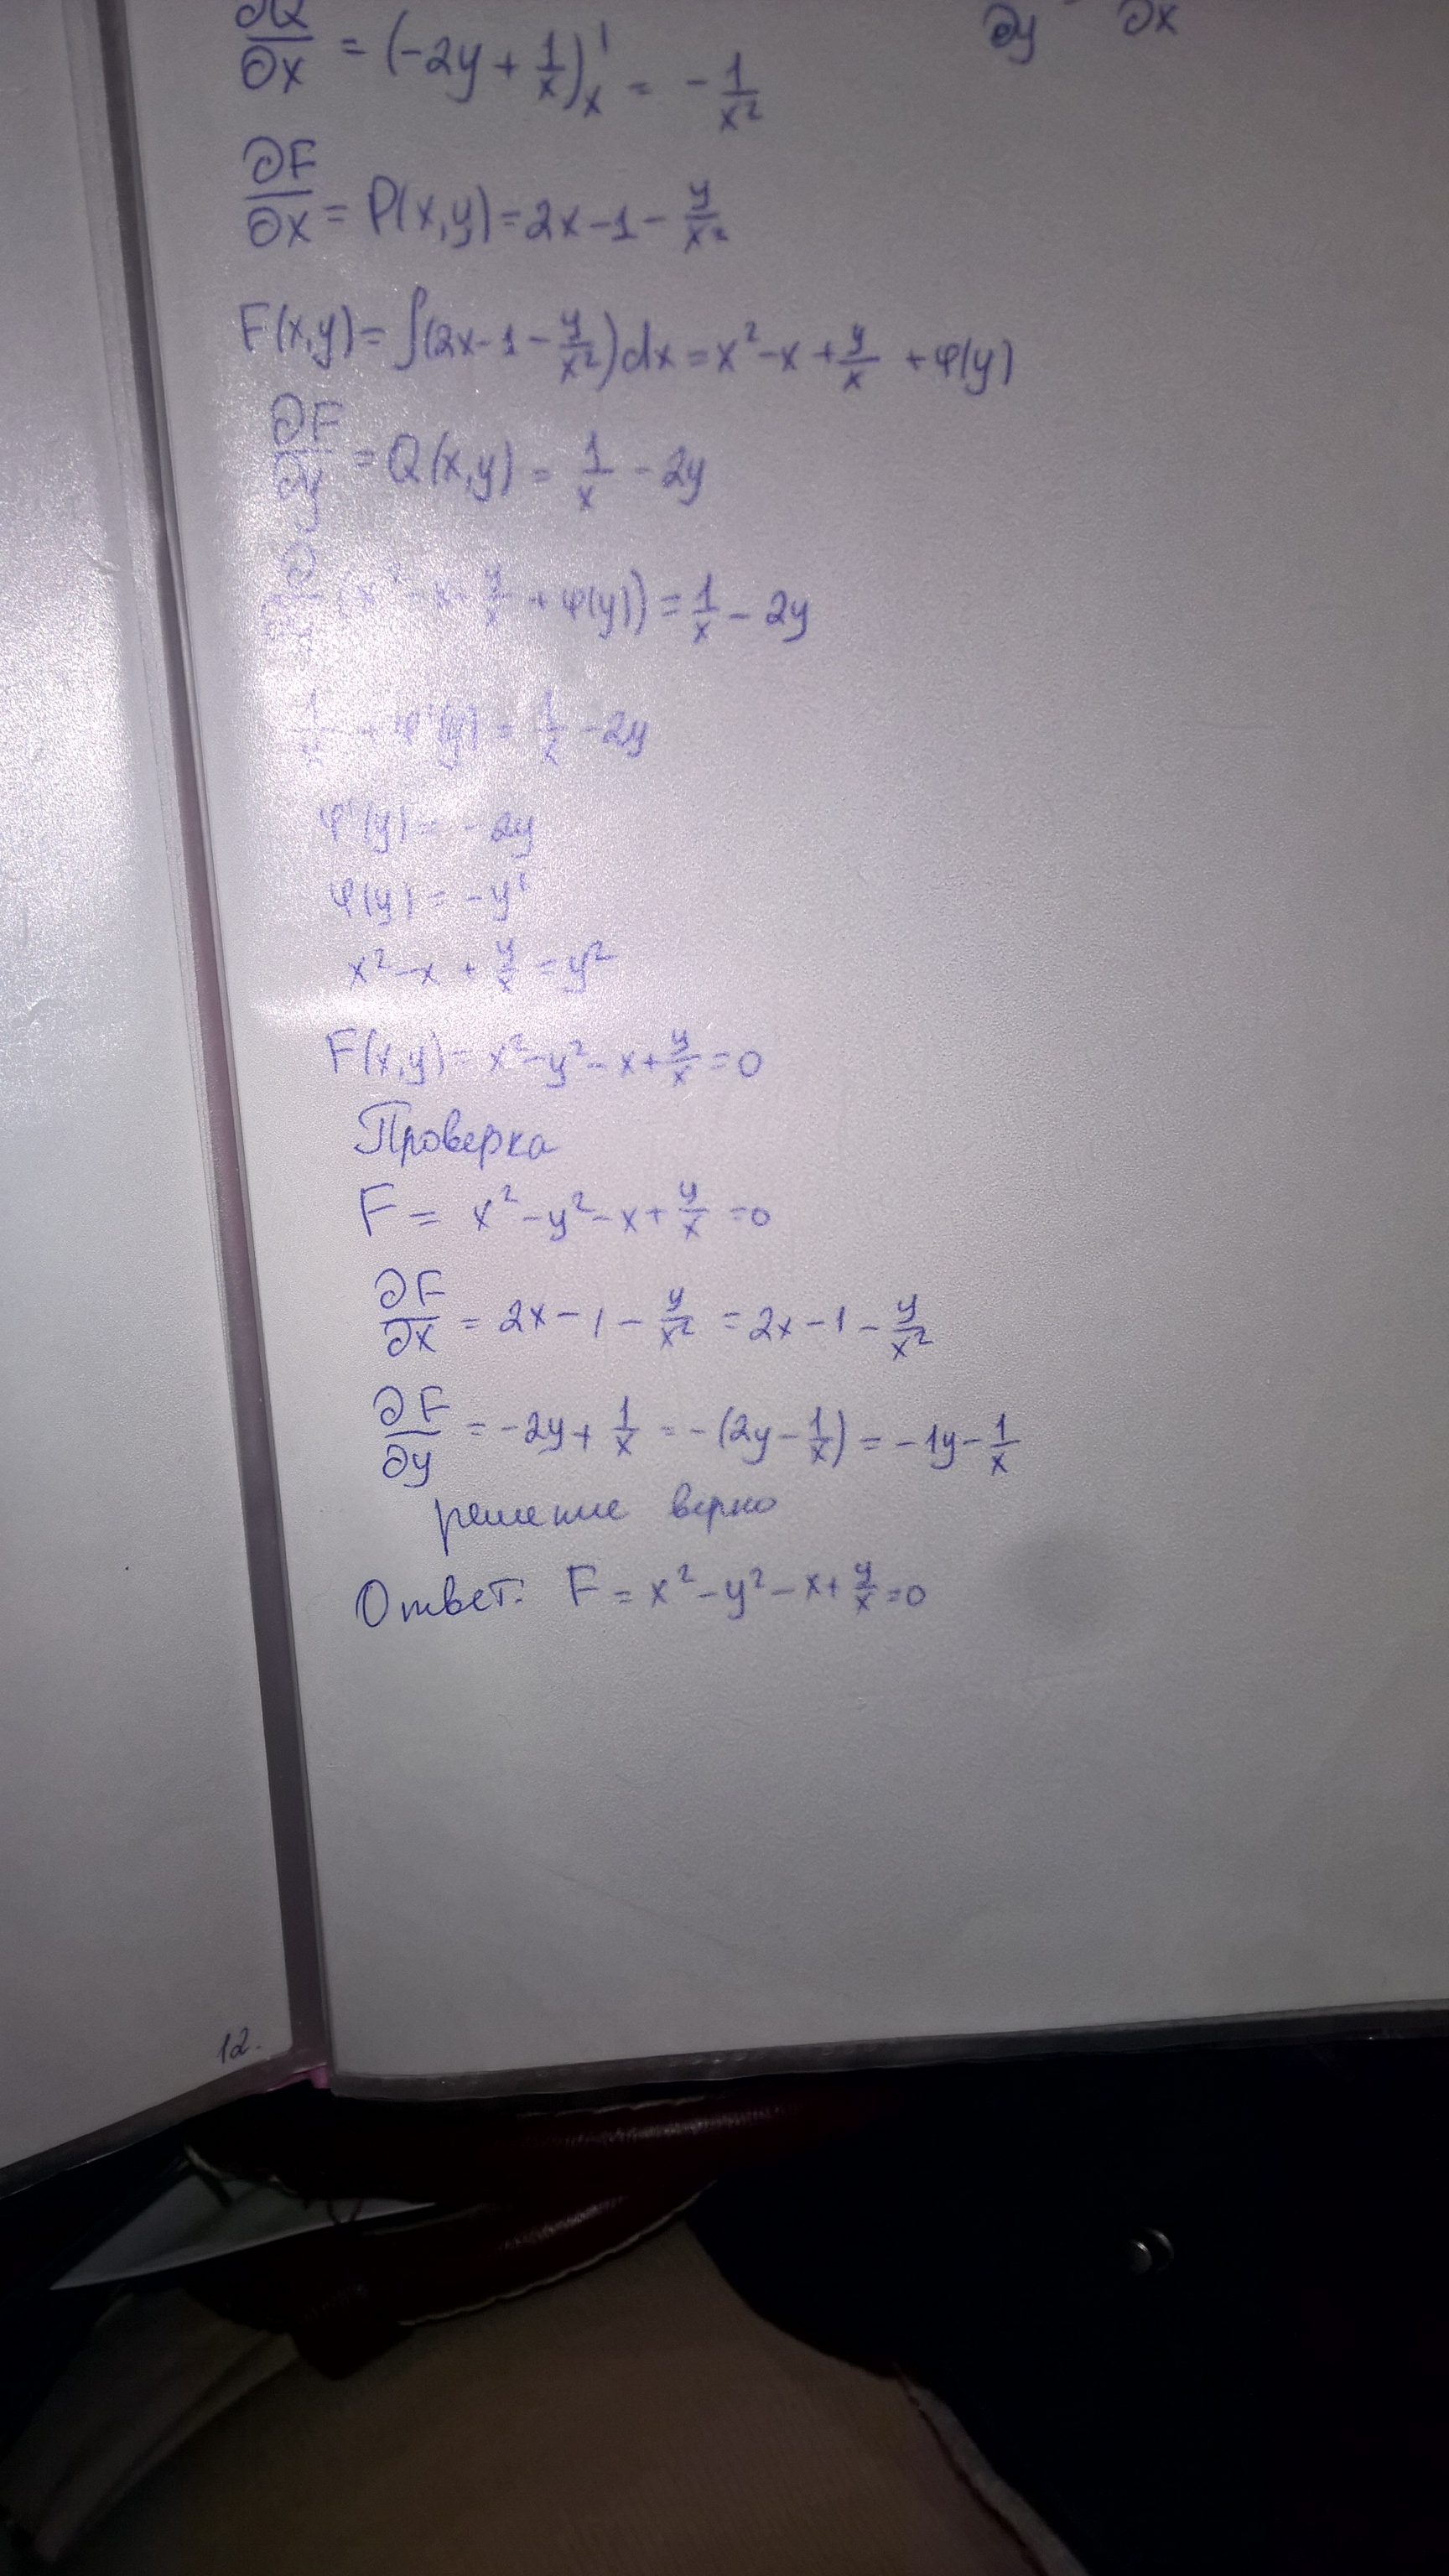 ∂Q/∂x = (-2y + 1/x)'ₓ = - 1/x²
∂y ∂x
∂F/∂x = P(x,y) = 2x-1- y/x²
F(x,y) = ∫(2x-1- y/x²)dx = x²-x + y/x + φ(y)
∂F/∂y = Q(x,y) = 1/x - 2y
∂/∂y (x² - x + y/x + φ(y)) = 1/x - 2y
1/x + φ'(y) = 1/x - 2y
φ'(y) = - 2y
φ(y) = -y²
x² - x + y/x = y²
F(x,y) = x²-y²-x+ y/x = 0
Проверка
F = x²-y²-x+ y/x =0
∂F/∂x = 2x-1- y/x² = 2x-1- y/x²
∂F/∂y = -2y+ 1/x = -(2y- 1/x) = -1y- 1/x
решение верно
Ответ: F = x²-y²-x+ y/x =0
12.